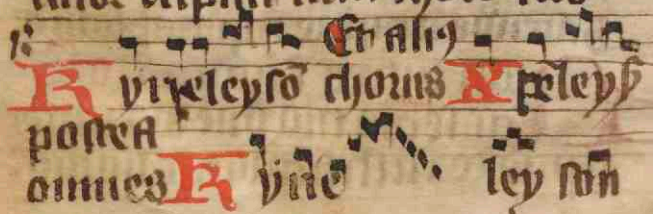 Et aliꝰ
Kyrieleysō chorus Xpeleyſ
poſtea
omnes Kyrie ley ſon